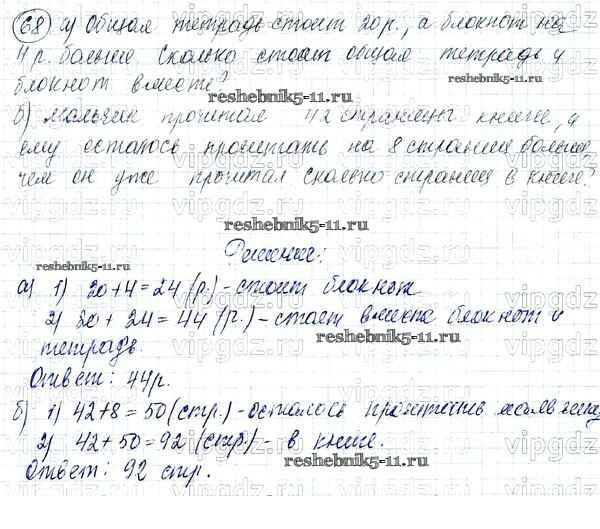 68 а) Общая тетрадь стоит 20 р., а блокнот на
4 р. больше. Сколько стоит общая тетрадь и
блокнот вместе?
reshebnik5-11.ru
б) Мальчик прочитал 42 страницы книги, и
ему осталось прочитать на 8 страниц больше,
чем он уже прочитал сколько страниц в книге?
reshebnik5-11.ru
Решение:
reshebnik5-11.ru
а) 1) 20+4=24 (р.) - стоит блокнот.
2) 20 + 24 = 44 (р.) - стоят вместе блокнот и
тетрадь.
reshebnik5-11.ru
Ответ: 44р.
б) 1) 42+8 = 50 (стр.) - осталось прочитать
2) 42 + 50 = 92 (стр.) - в книге.
reshebnik5-11.ru
Ответ: 92 стр.